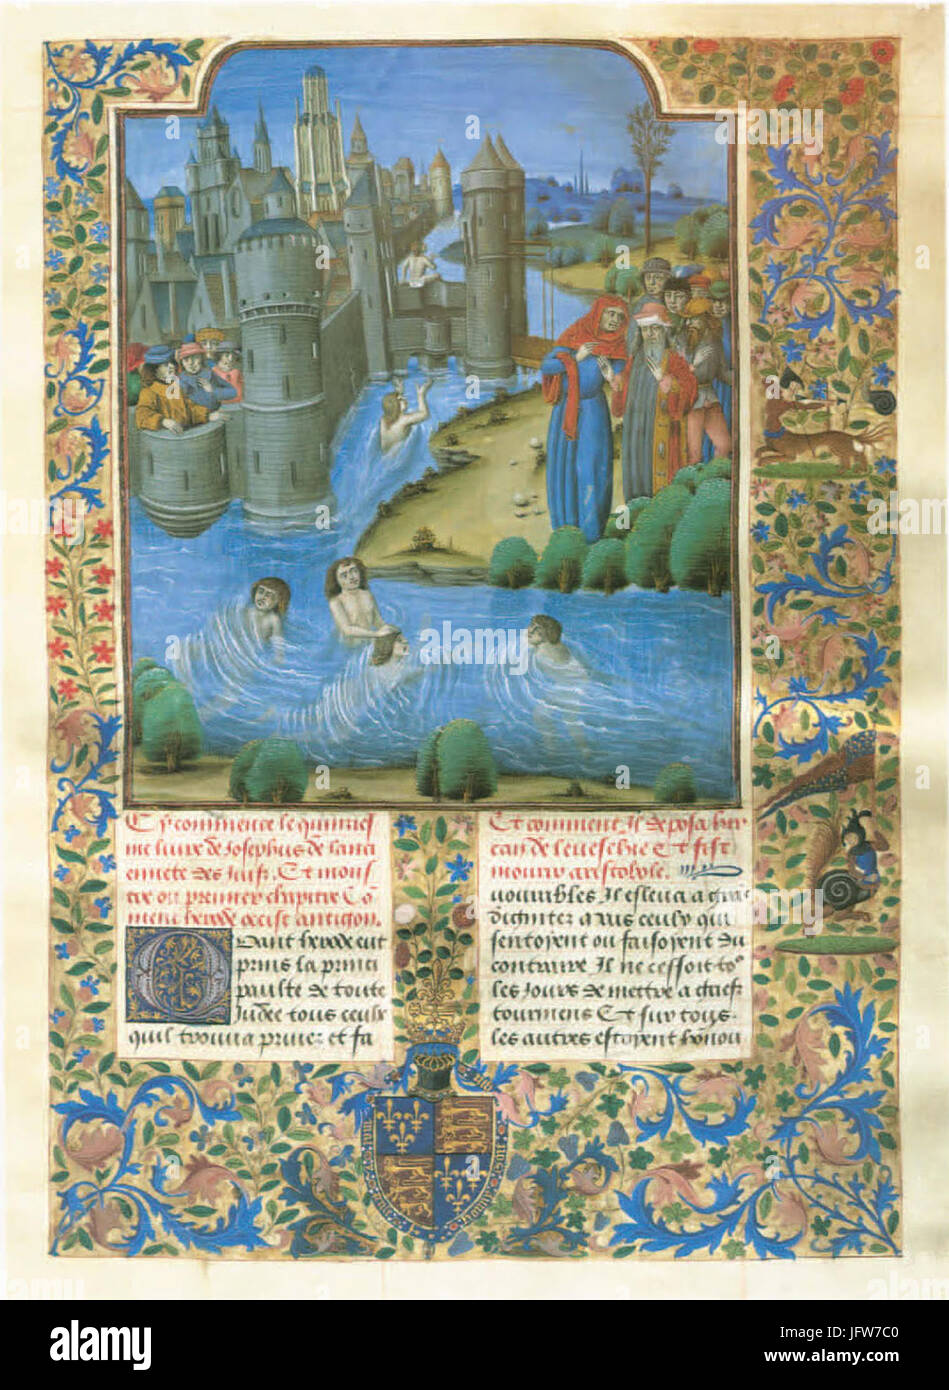 Cy commence le quinzies
me livre de Josephus de lanci
ennete des Juifz. Et mons
tre ou premier chapitre Com
ment herode occist antigon.
Quant herode eut
prins la princi
paulte de toute
Judee tous ceulx
quil trouua priuez et fa
Et comment il deposa hir
can de leveschie Et fist
mourir aristobole.
uourables Il esleua a grāt
dictinitez a tous ceulx qui
sentoyent ou faisoyent du
contraire Il ne cessoit to9
les Jours de mettre a grief
tourmens Et sur tous
les autres estoyent honou
alamy stock photo
JFW7C0
www.alamy.com